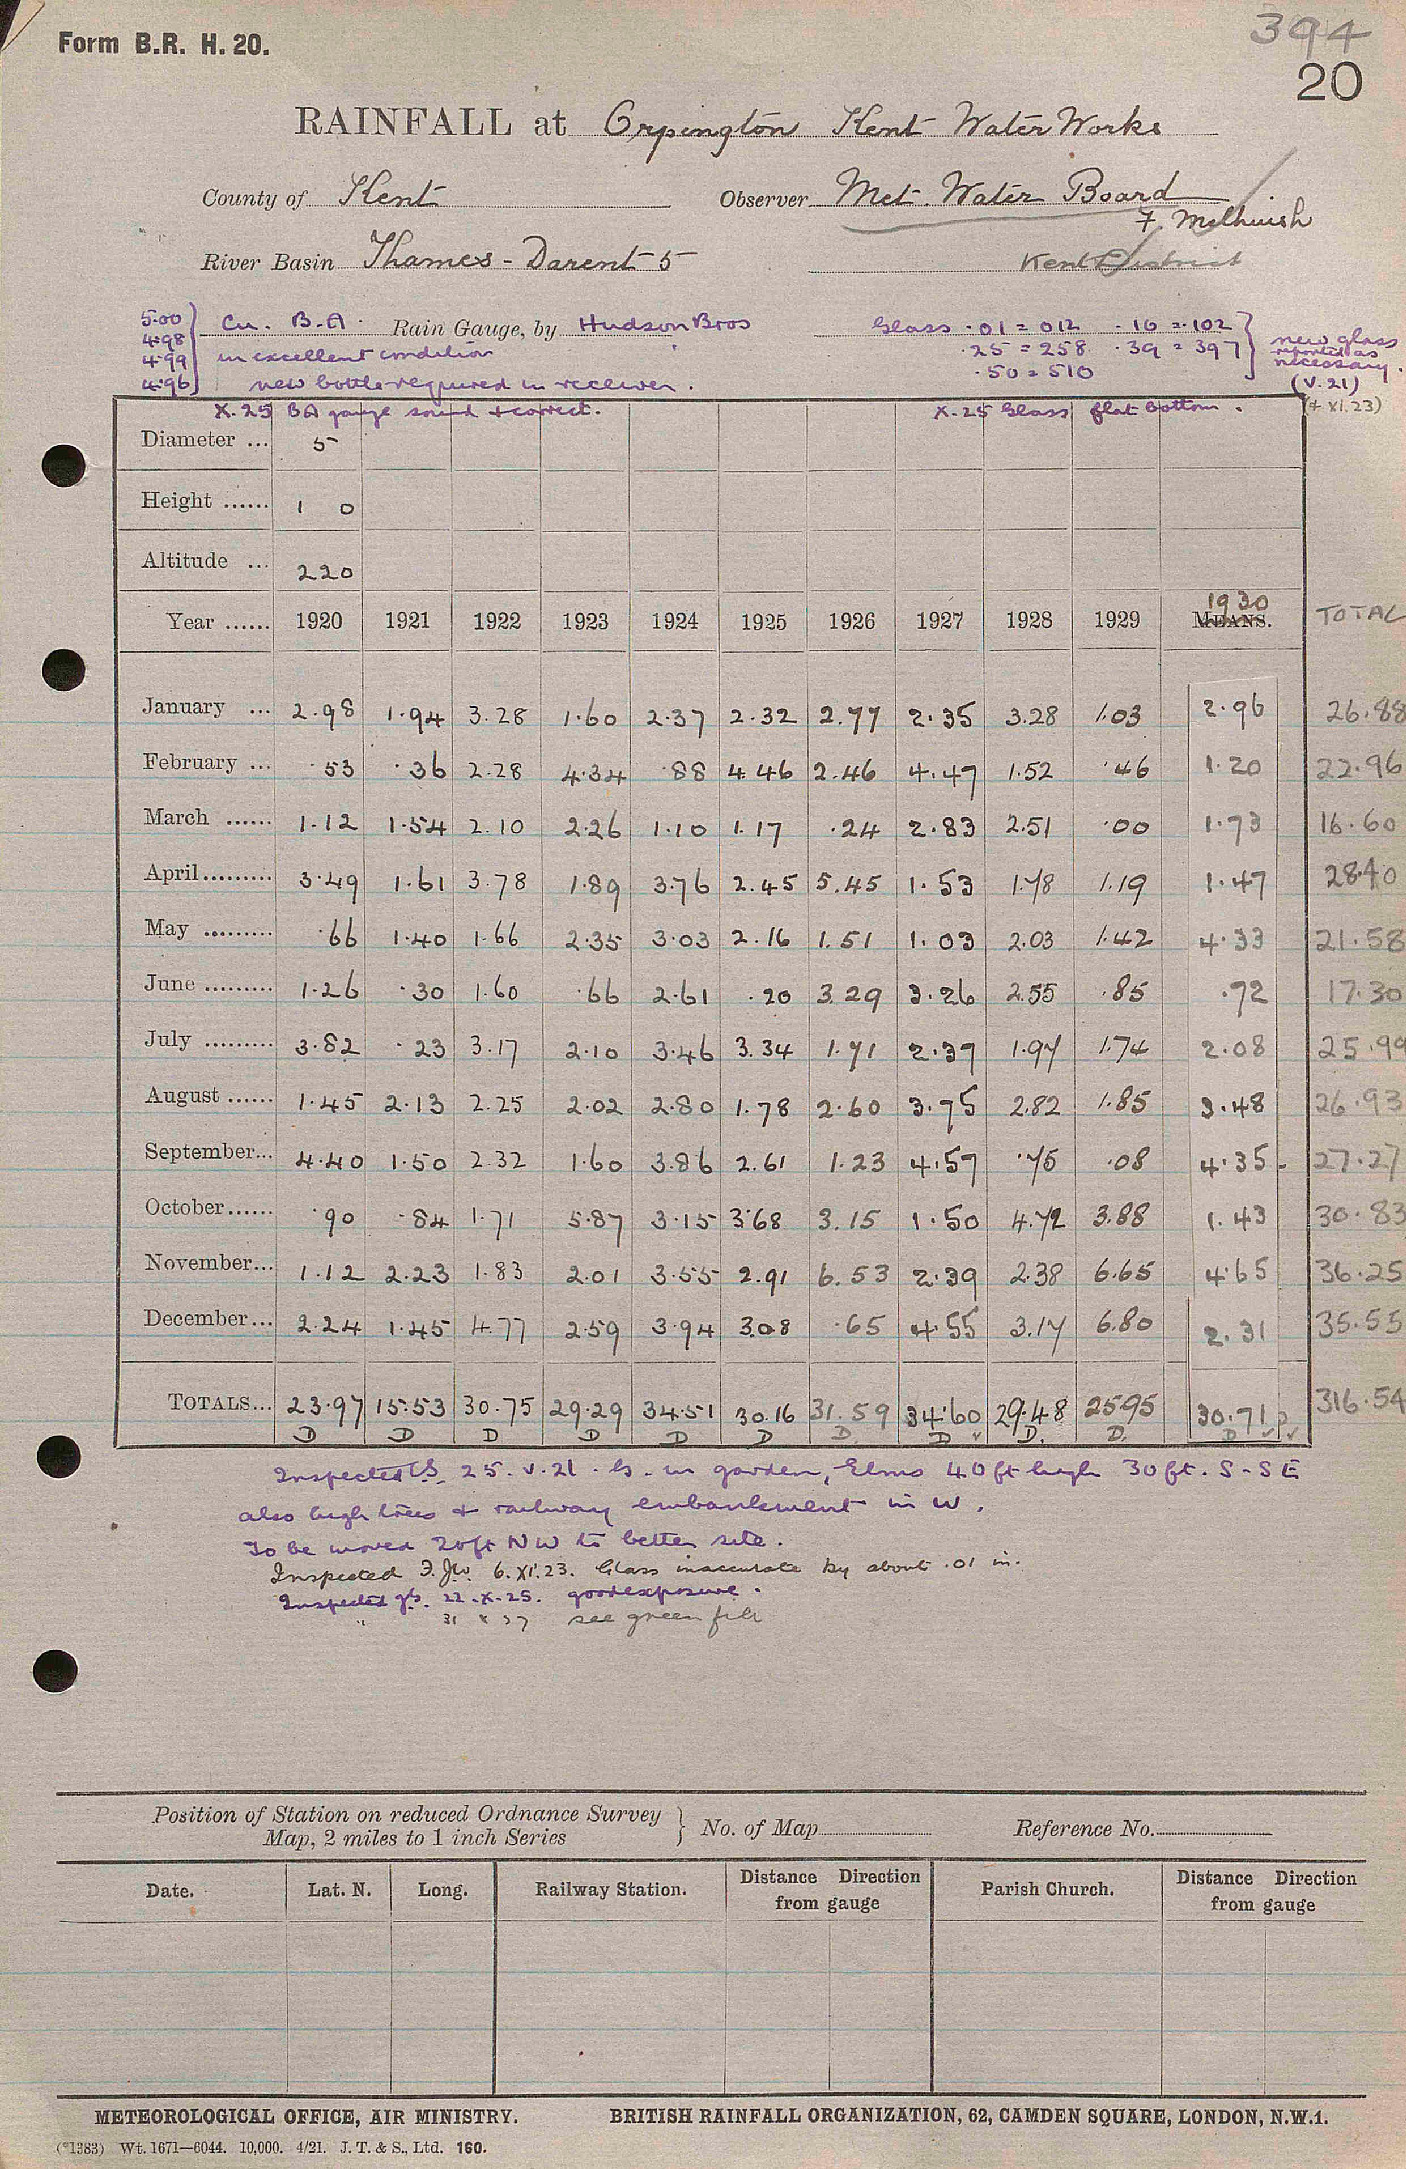 394
Form B.R. H. 20.
20
RAINFALL at Orpington Kent Water Works
County of Kent Observer Met. Water Board
F. Melhuish
River Basin Thames - Darent 5 Kent District
5.00 Cu. B.A. Rain Gauge, by Hudson Bros Glass .01 = 012 .10 = .102 new glass
4.98 in excellent condition .25 = 258 .39 = 397 reported as
4.99 new bottle required in receiver. .50 = 510 necessary.
4.96 (V.21)
X.25 BA gauge sound & correct. X.25 Glass flat bottom. (+ XI.23)
Diameter ... 5
Height ...... 1 0
Altitude ... 220
Year ...... 1920 1921 1922 1923 1924 1925 1926 1927 1928 1929 MEANS. 1930 TOTAL
January ... 2.98 1.94 3.28 1.60 2.37 2.32 2.77 2.35 3.28 1.03 2.96 26.88
February ... .53 .36 2.28 4.34 .88 4.46 2.46 4.47 1.52 .46 1.20 22.96
March ...... 1.12 1.54 2.10 2.26 1.10 1.17 .24 2.83 2.51 .00 1.73 16.60
April ......... 3.49 1.61 3.78 1.89 3.76 2.45 5.45 1.53 1.78 1.19 1.47 28.40
May ......... .66 1.40 1.66 2.35 3.03 2.16 1.51 1.03 2.03 1.42 4.33 21.58
June ......... 1.26 .30 1.60 .66 2.61 .20 3.29 3.26 2.55 .85 .72 17.30
July ......... 3.82 .23 3.17 2.10 3.46 3.34 1.71 2.39 1.97 1.74 2.08 25.99
August ...... 1.45 2.13 2.25 2.02 2.80 1.78 2.60 3.75 2.82 1.85 3.48 26.93
September... 4.40 1.50 2.32 1.60 3.86 2.61 1.23 4.57 .75 .08 4.35 27.27
October...... .90 .84 1.71 5.87 3.15 3.68 3.15 1.50 4.72 3.88 1.43 30.83
November... 1.12 2.23 1.83 2.01 3.55 2.91 6.53 2.39 2.38 6.65 4.65 36.25
December... 2.24 1.45 4.77 2.59 3.94 3.08 .65 4.55 3.17 6.80 2.31 35.55
TOTALS... 23.97 15.53 30.75 29.29 34.51 30.16 31.59 34.60 29.48 25.95 30.71 316.54
D D D D D D D D D. D. D
Inspected 25.V.21. in garden, Elms 40ft high 30ft. S-SE
also high trees & railway embankment in W.
To be moved 20ft NW to better site.
Inspected 6.XI.23. Glass inaccurate by about .01 in.
Inspected 22.X.25. good exposure.
" 31 X 37 see green file
Position of Station on reduced Ordnance Survey
Map, 2 miles to 1 inch Series } No. of Map Reference No.
Date. Lat. N. Long. Railway Station. Distance Direction from gauge Parish Church. Distance Direction from gauge
METEOROLOGICAL OFFICE, AIR MINISTRY. BRITISH RAINFALL ORGANIZATION, 62, CAMDEN SQUARE, LONDON, N.W.1.
(*1383) Wt. 1671—6044. 10,000. 4/21. J. T. & S., Ltd. 160.